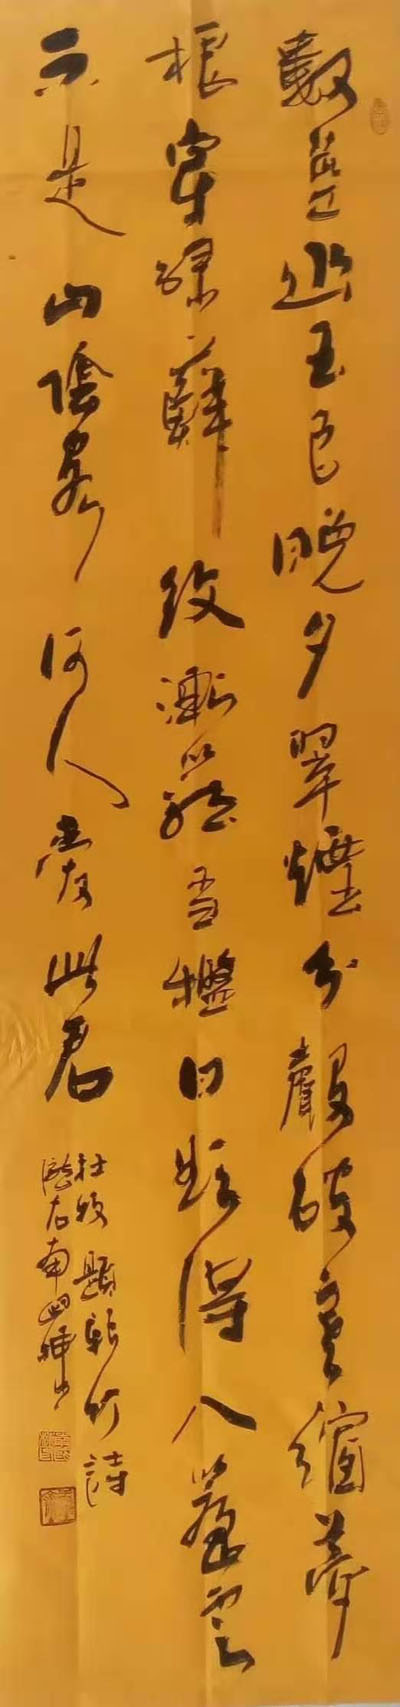 數莖幽玉色晚夕翠煙分聲破寒窗夢
根穿綠蘚紋漸籠當檻日欲得入簾雲
不是山陰客何人愛此君
杜牧題新竹詩
隴右南